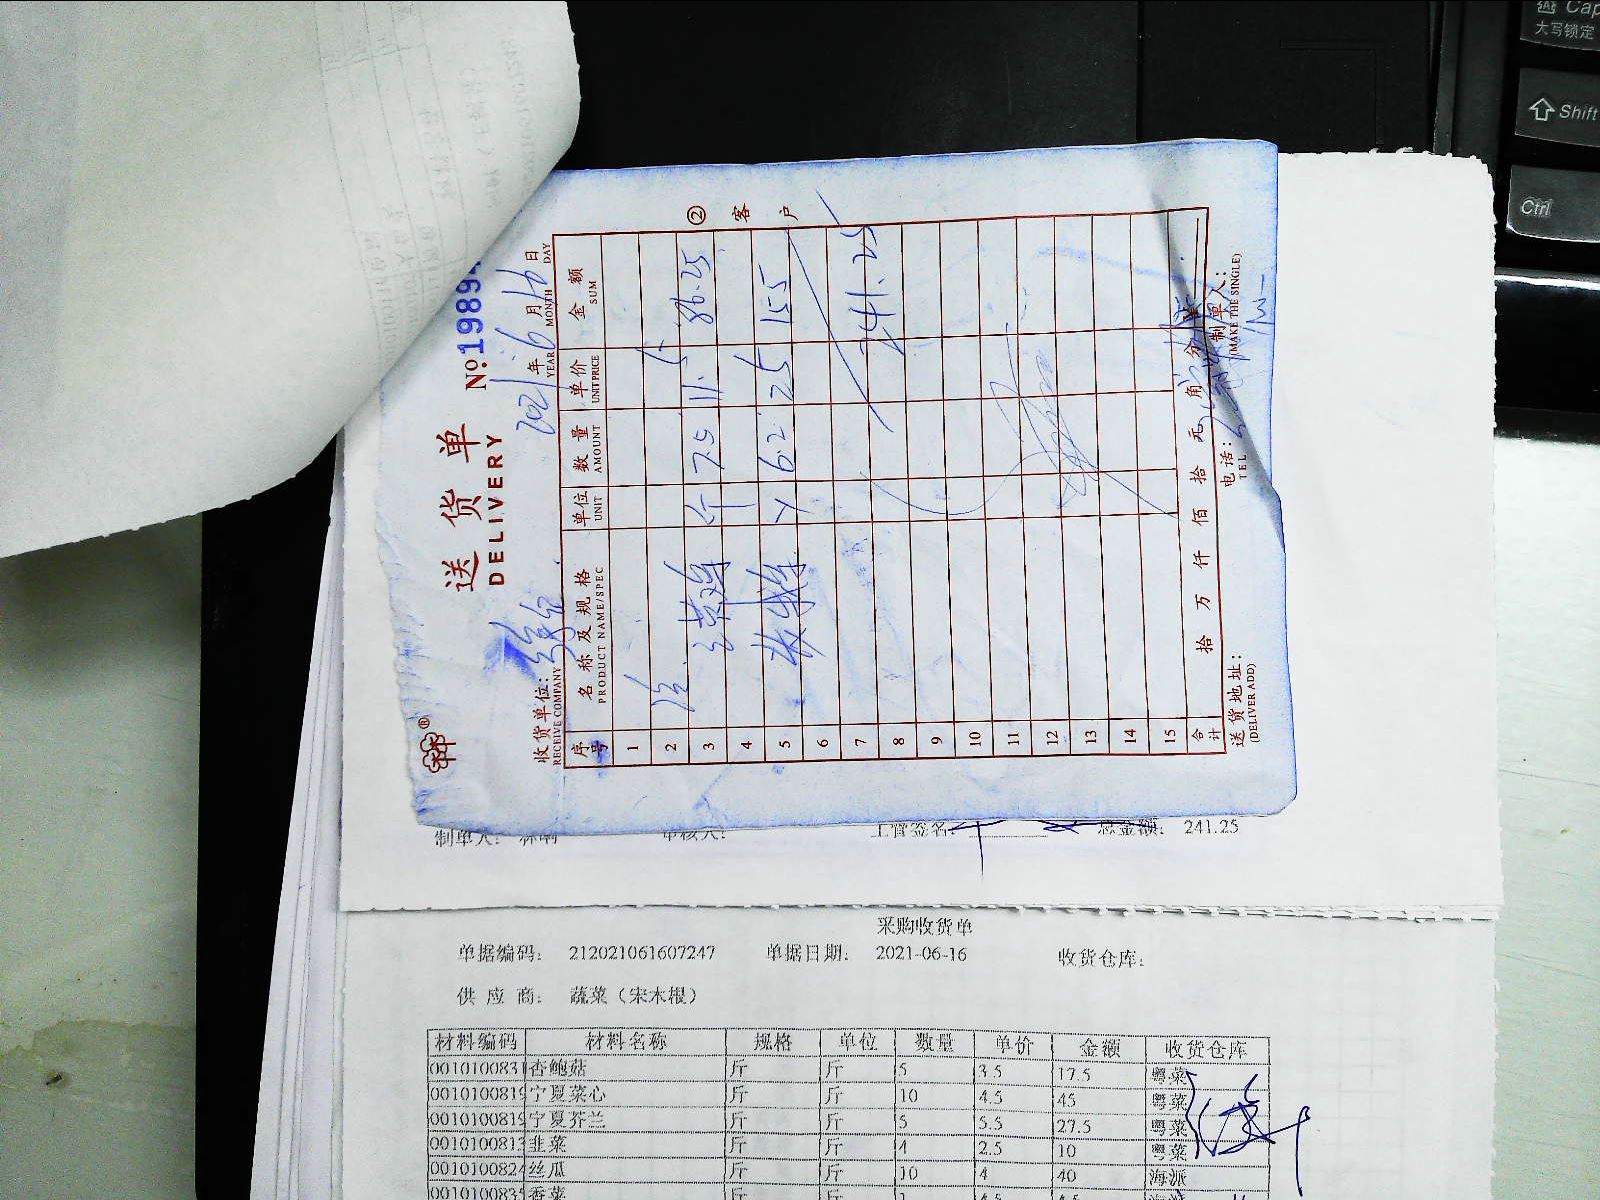 送货单
DELIVERY
No.1989
收货单位:
RECEIVE COMPANY
2021年6月16日
YEAR MONTH DAY
② 客户
序号 名称及规格 单位 数量 单价 金额
PRODUCT NAME/SPEC UNIT AMOUNT UNIT PRICE SUM
1
2
3 个 7.5 11.5 86.25
4
5 6.2 25 155
6
7 241.25
8
9
10
11
12
13
14
15
合计 拾 万 仟 佰 拾 元 角 分 ¥
送货地址: 电话: 制单人:
(DELIVER ADD) TEL (MAKE THE SINGLE)
制单人: 审核人: 主管签名: 总金额: 241.25
采购收货单
单据编码: 212021061607247 单据日期: 2021-06-16 收货仓库:
供应商: 蔬菜(宋木根)
材料编码 材料名称 规格 单位 数量 单价 金额 收货仓库
0010100831 杏鲍菇 斤 斤 5 3.5 17.5 粤菜
0010100819 宁夏菜心 斤 斤 10 4.5 45 粤菜
0010100819 宁夏芥兰 斤 斤 5 5.5 27.5 粤菜
0010100813 韭菜 斤 斤 4 2.5 10 粤菜
0010100824 丝瓜 斤 斤 10 4 40 海派
0010100835 香菜 斤 斤 1 4.5 4.5 海派
Cap
大写锁定
Shift
Ctrl